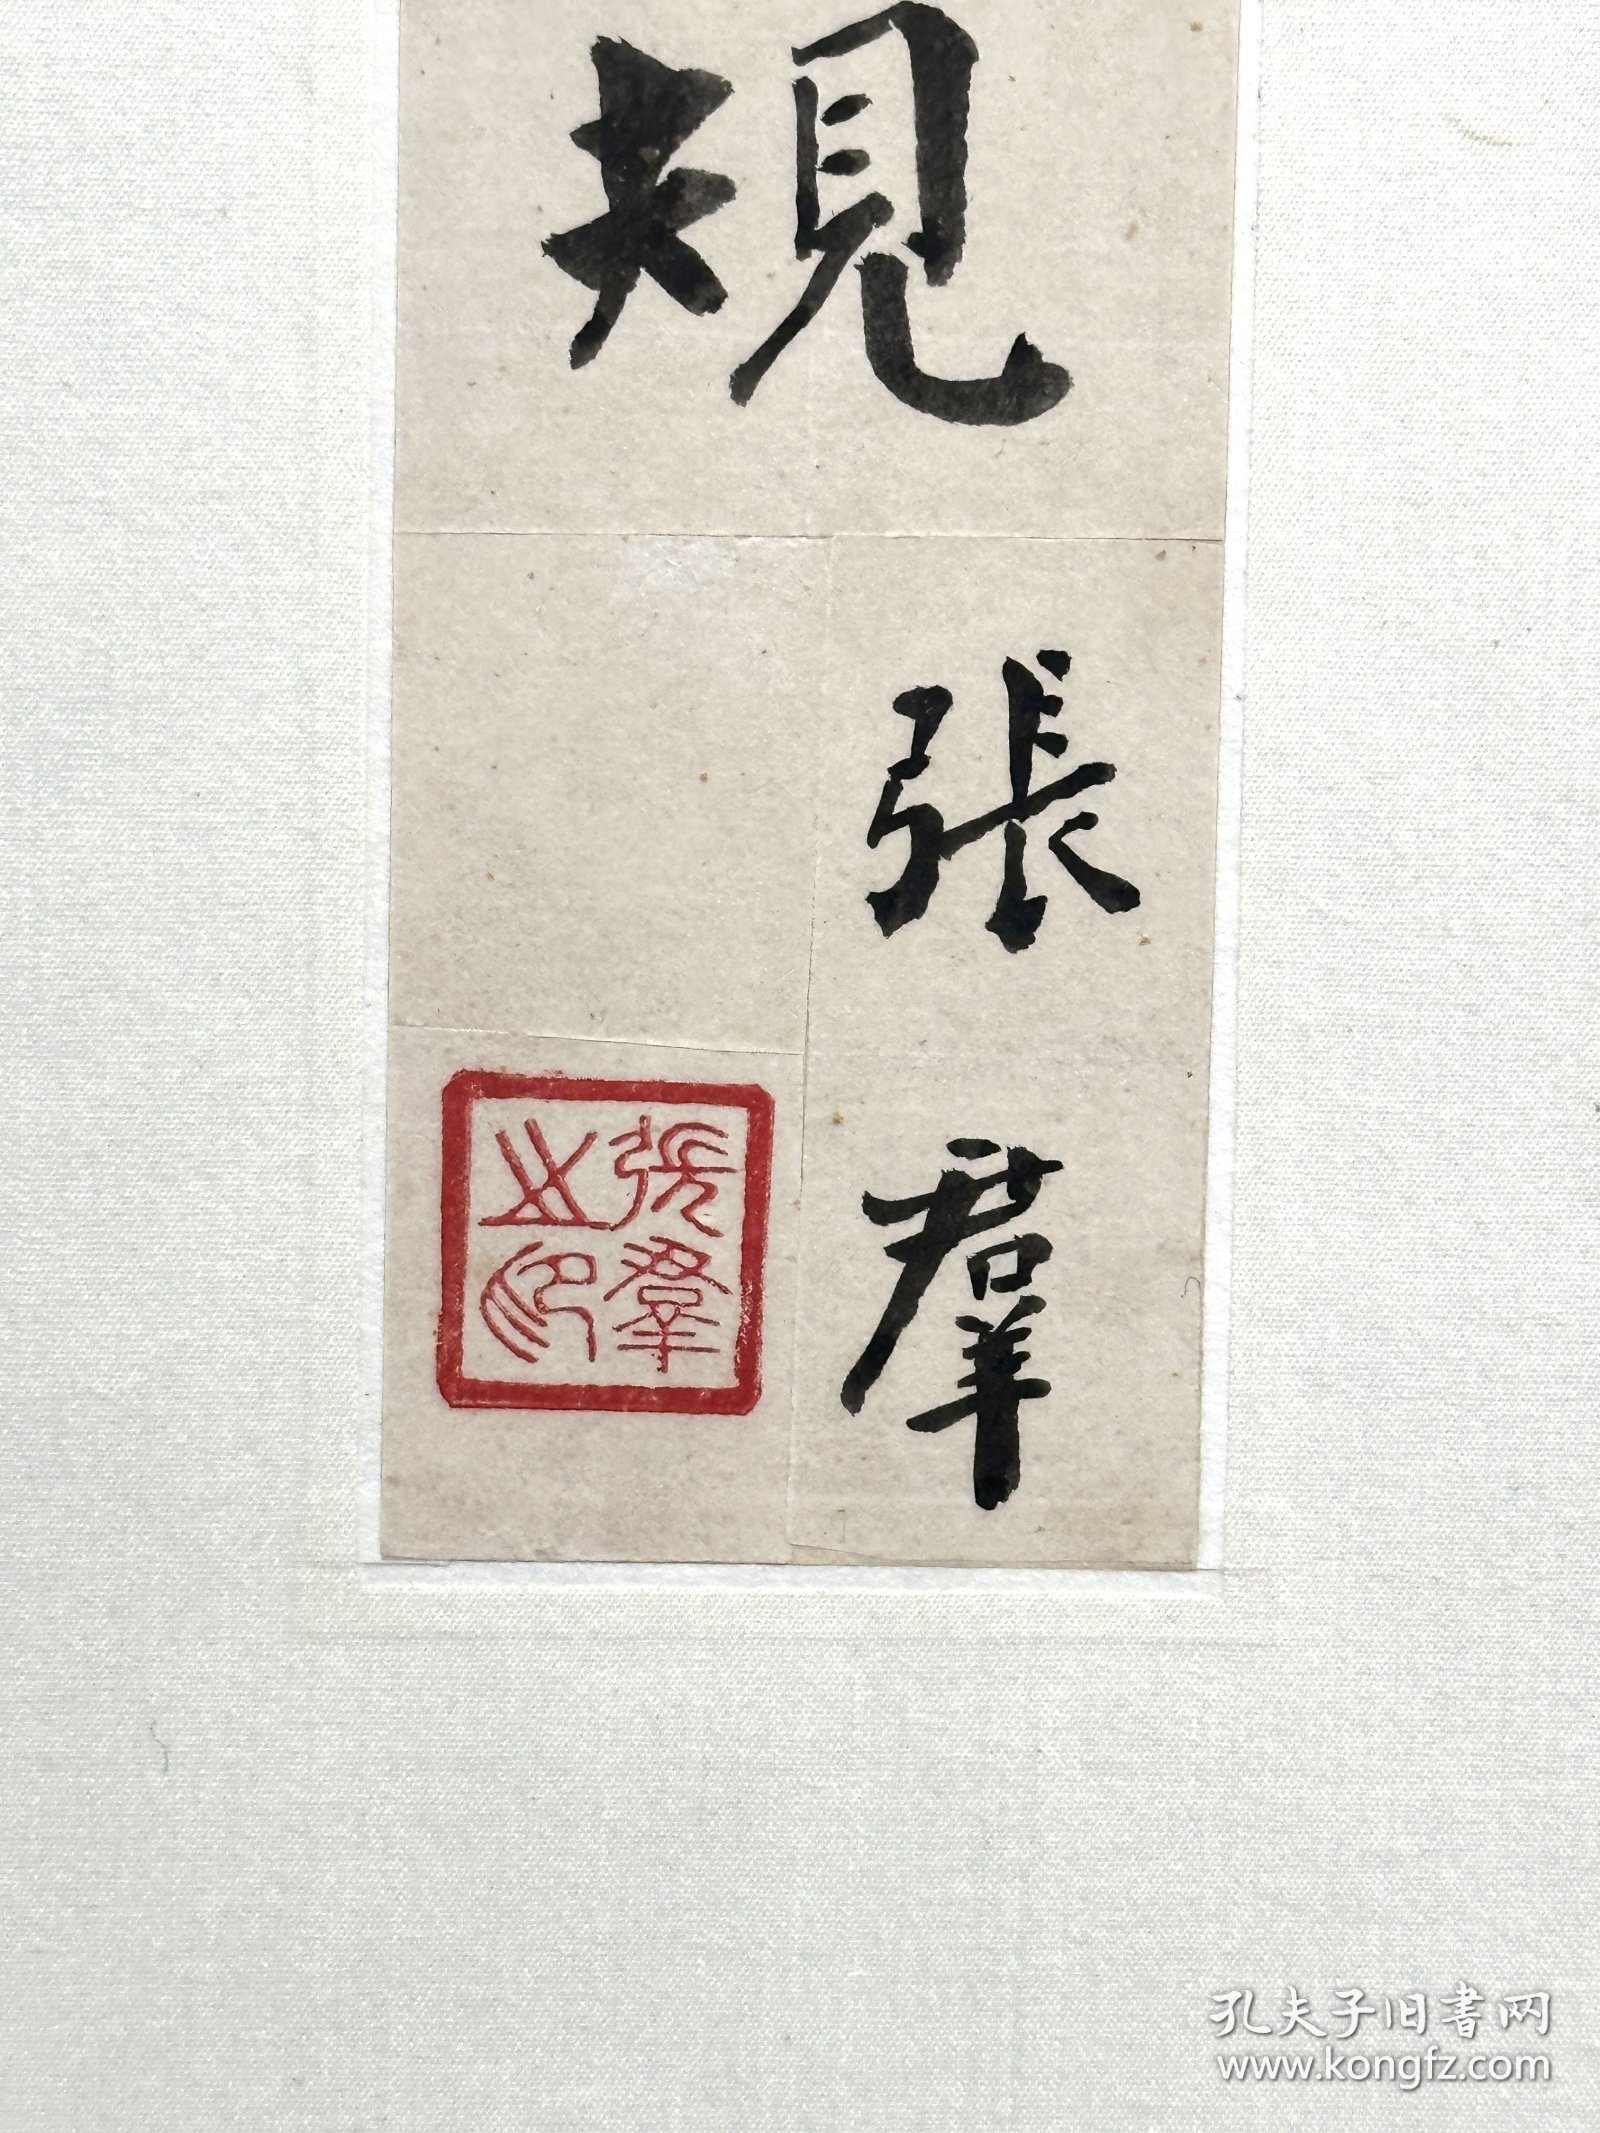 規
張羣
張羣之印
孔夫子旧书网
www.kongfz.com